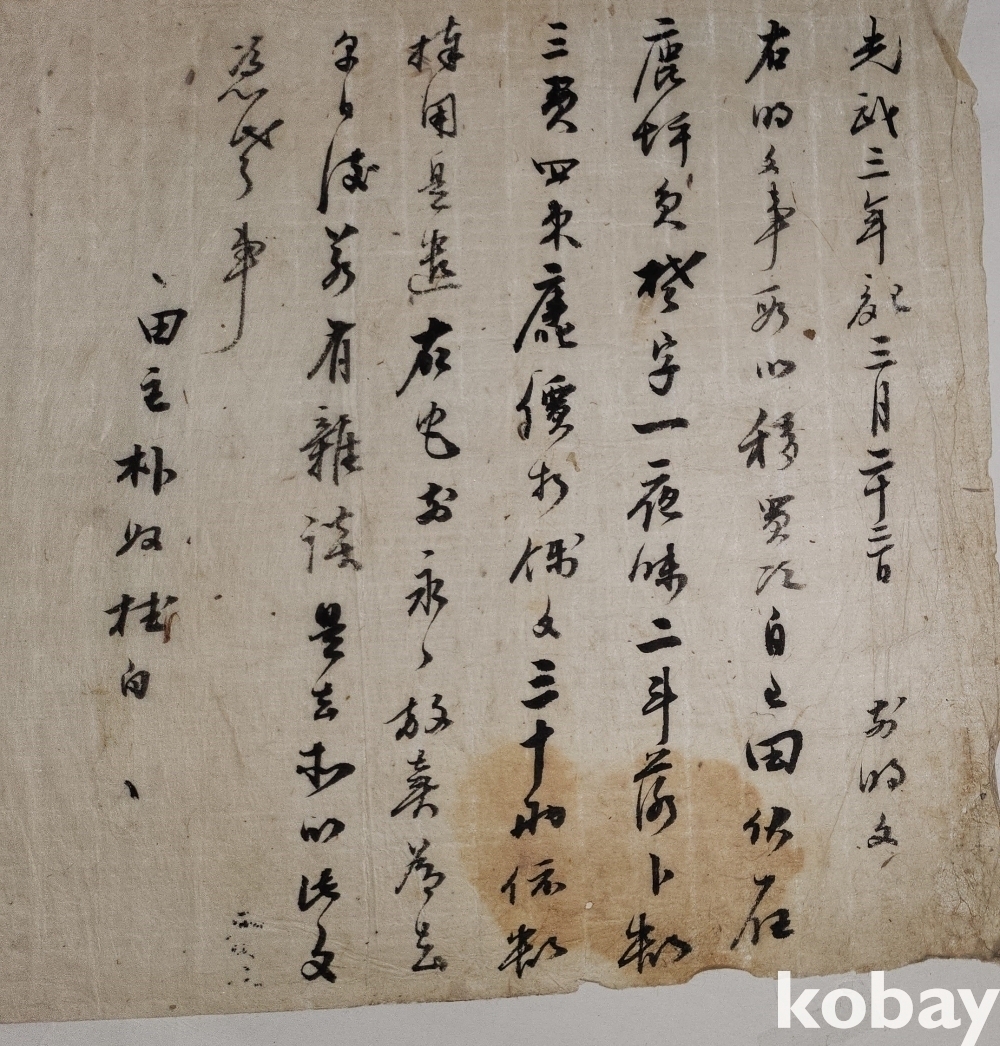 光武三年己亥三月二十三日 前明文
右明文事段以移買次自己田伏在
坪員楚字一夜味二斗落卜數
三負四束庫價折價文三十兩依數
捧用是遣右宅前永〻放賣爲去
乎日後若有雜談是去等以此文
憑考事
田主朴奴桂白
kobay